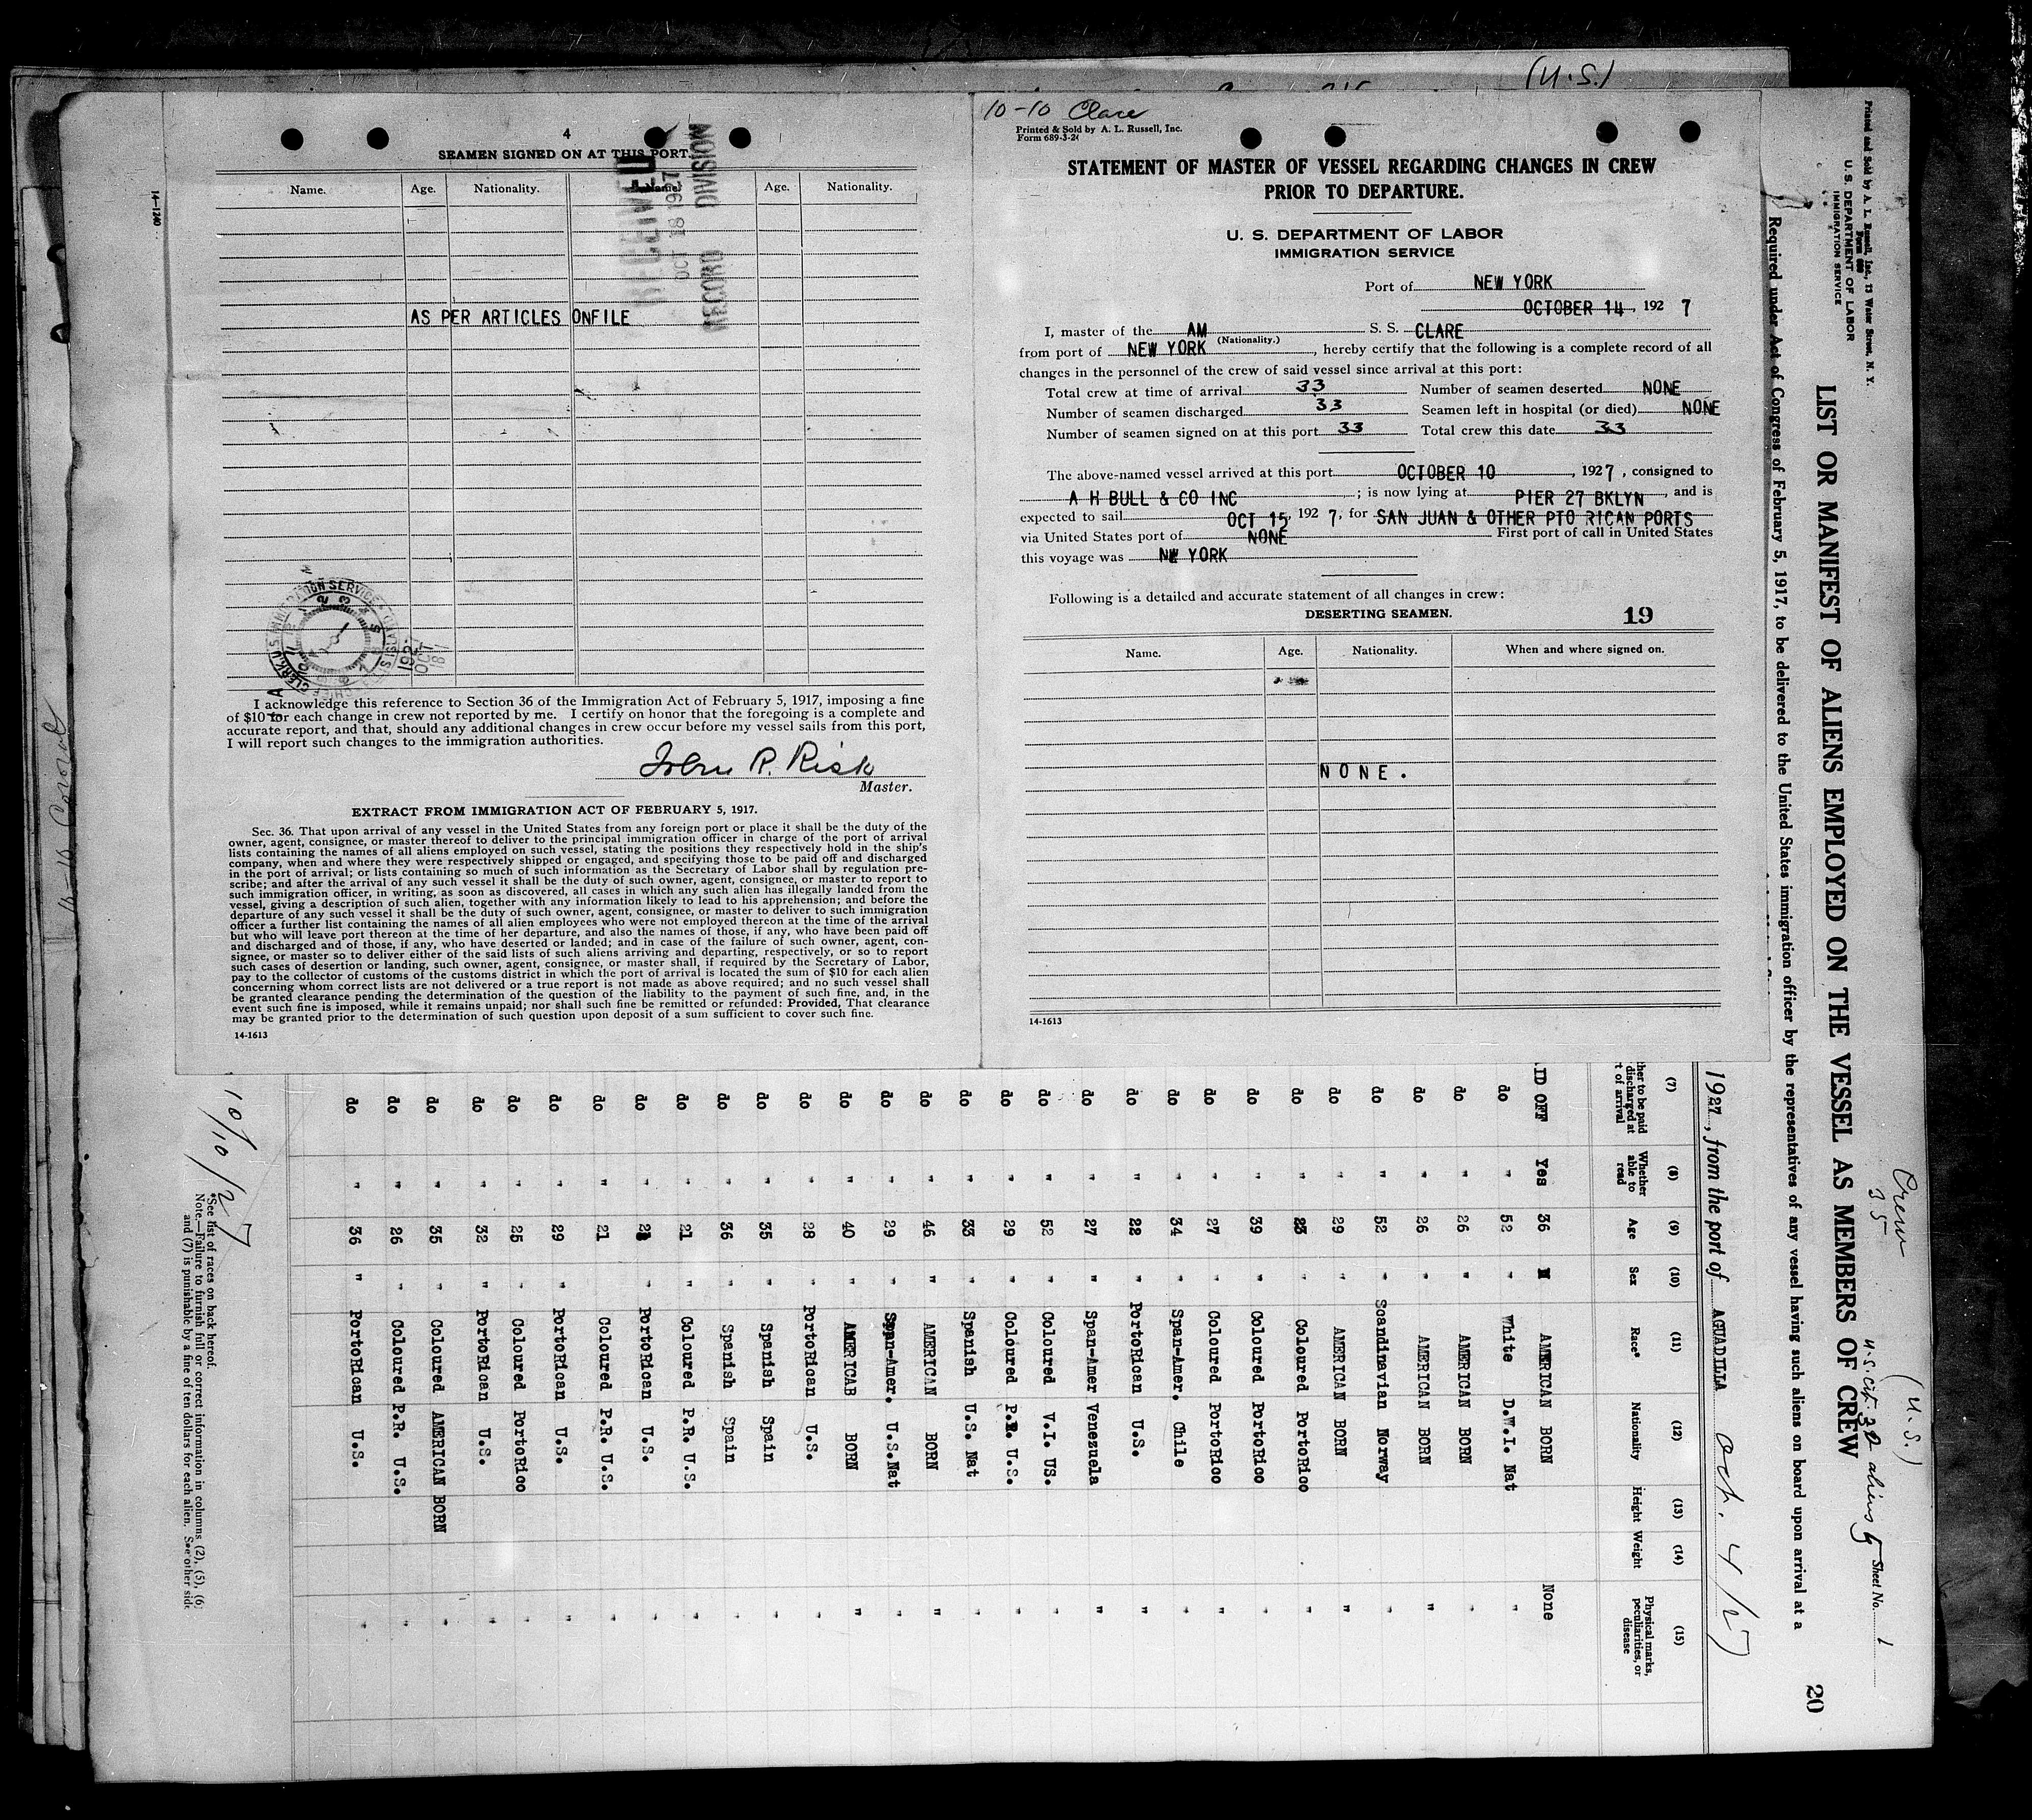 (U.S.)
4
SEAMEN SIGNED ON AT THIS PORT.
Name. Age. Nationality. Name. Age. Nationality.
RECEIVED
OCT 18 1927
RECORD DIVISION
AS PER ARTICLES ONFILE
14-1240
I acknowledge this reference to Section 36 of the Immigration Act of February 5, 1917, imposing a fine
of $10 for each change in crew not reported by me. I certify on honor that the foregoing is a complete and
accurate report, and that, should any additional changes in crew occur before my vessel sails from this port,
I will report such changes to the immigration authorities.
John R. Risk
Master.
EXTRACT FROM IMMIGRATION ACT OF FEBRUARY 5, 1917.
Sec. 36. That upon arrival of any vessel in the United States from any foreign port or place it shall be the duty of the
owner, agent, consignee, or master thereof to deliver to the principal immigration officer in charge of the port of arrival
lists containing the names of all aliens employed on such vessel, stating the positions they respectively hold in the ship's
company, when and where they were respectively shipped or engaged, and specifying those to be paid off and discharged
in the port of arrival; or lists containing so much of such information as the Secretary of Labor shall by regulation pre-
scribe; and after the arrival of any such vessel it shall be the duty of such owner, agent, consignee, or master to report to
such immigration officer, in writing, as soon as discovered, all cases in which any such alien has illegally landed from the
vessel, giving a description of such alien, together with any information likely to lead to his apprehension; and before the
departure of any such vessel it shall be the duty of such owner, agent, consignee, or master to deliver to such immigration
officer a further list containing the names of all alien employees who were not employed thereon at the time of the arrival
but who will leave port thereon at the time of her departure, and also the names of those, if any, who have been paid off
and discharged and of those, if any, who have deserted or landed; and in case of the failure of such owner, agent, con-
signee, or master so to deliver either of the said lists of such aliens arriving and departing, respectively, or so to report
such cases of desertion or landing, such owner, agent, consignee, or master shall, if required by the Secretary of Labor,
pay to the collector of customs of the customs district in which the port of arrival is located the sum of $10 for each alien
concerning whom correct lists are not delivered or a true report is not made as above required; and no such vessel shall
be granted clearance pending the determination of the question of the liability to the payment of such fine, and, in the
event such fine is imposed, while it remains unpaid; nor shall such fine be remitted or refunded: Provided, That clearance
may be granted prior to the determination of such question upon deposit of a sum sufficient to cover such fine.
14-1613
10-10 Clare
Printed & Sold by A. L. Russell, Inc.
Form 689-3-24
STATEMENT OF MASTER OF VESSEL REGARDING CHANGES IN CREW
PRIOR TO DEPARTURE.
U. S. DEPARTMENT OF LABOR
IMMIGRATION SERVICE
Port of NEW YORK
OCTOBER 14, 1927
I, master of the AM S. S. CLARE
(Nationality.)
from port of NEW YORK, hereby certify that the following is a complete record of all
changes in the personnel of the crew of said vessel since arrival at this port:
Total crew at time of arrival 33 Number of seamen deserted NONE
Number of seamen discharged 33 Seamen left in hospital (or died) NONE
Number of seamen signed on at this port 33 Total crew this date 33
The above-named vessel arrived at this port OCTOBER 10, 1927, consigned to
A H BULL & CO INC; is now lying at PIER 27 BKLYN, and is
expected to sail OCT 15, 1927, for SAN JUAN & OTHER PTO RICAN PORTS
via United States port of NONE First port of call in United States
this voyage was NW YORK
Following is a detailed and accurate statement of all changes in crew:
DESERTING SEAMEN. 19
Name. Age. Nationality. When and where signed on.
NONE.
14-1613
Printed and Sold by A. L. Russell, Inc., 13 Water Street, N. Y.
U. S. DEPARTMENT OF LABOR
IMMIGRATION SERVICE
Crew 35
(U.S.)
U.S. cit. 30 aliens 5
Sheet No. 1
20
LIST OR MANIFEST OF ALIENS EMPLOYED ON THE VESSEL AS MEMBERS OF CREW
Required under Act of Congress of February 5, 1917, to be delivered to the United States immigration officer by the representatives of any vessel having such aliens on board upon arrival at a
1927, from the port of AGUADILLA Oct. 4/27
(7) (8) (9) (10) (11) (12) (13) (14) (15)
ther to be paid discharged at t of arrival Whether able to read Age Sex Race* Nationality Height Weight Physical marks, peculiarities, or disease
ID OFF Yes 36 M AMERICAN BORN None
do " 52 " White D.W.I. Nat "
do " 26 " AMERICAN BORN
do " 26 " AMERICAN BORN "
do " 52 " Scandinavian Norway "
do " 29 " AMERICAN BORN "
do " 23 " Coloured PortoRico "
do " 39 " Coloured PortoRico "
do " 27 " Coloured PortoRico "
do " 34 " Span-Amer. Chile "
do " 22 " PortoRican U.S. "
do " 27 " Span-Amer Venezuela "
do " 52 " Coloured V.I. US. "
do " 29 " Coloured P.R. U.S. "
do " 33 " Spanish U.S. Nat "
do " 46 " AMERICAN BORN "
do " 29 " Span-Amer. U.S.Nat "
do " 40 " AMERICAB BORN "
do " 28 " PortoRican U.S. "
do " 35 " Spanish Spain "
do " 36 " Spanish Spain "
do " 21 " Coloured P.R. U.S. "
do " " PortoRican U.S. "
do " 21 " Coloured P.R. U.S. "
do " 29 " PortoRican U.S. "
do " 25 " Coloured PortoRico "
do " 32 " PortoRican U.S. "
do " 35 " Coloured AMERICAN BORN "
do " 26 " Coloured P.R. U.S. "
do " 36 " PortoRican U.S. "
10/10/27
*See list of races on back hereof.
Note.—Failure to furnish full or correct information in columns (2), (5), (6)
and (7) is punishable by a fine of ten dollars for each alien. See other side